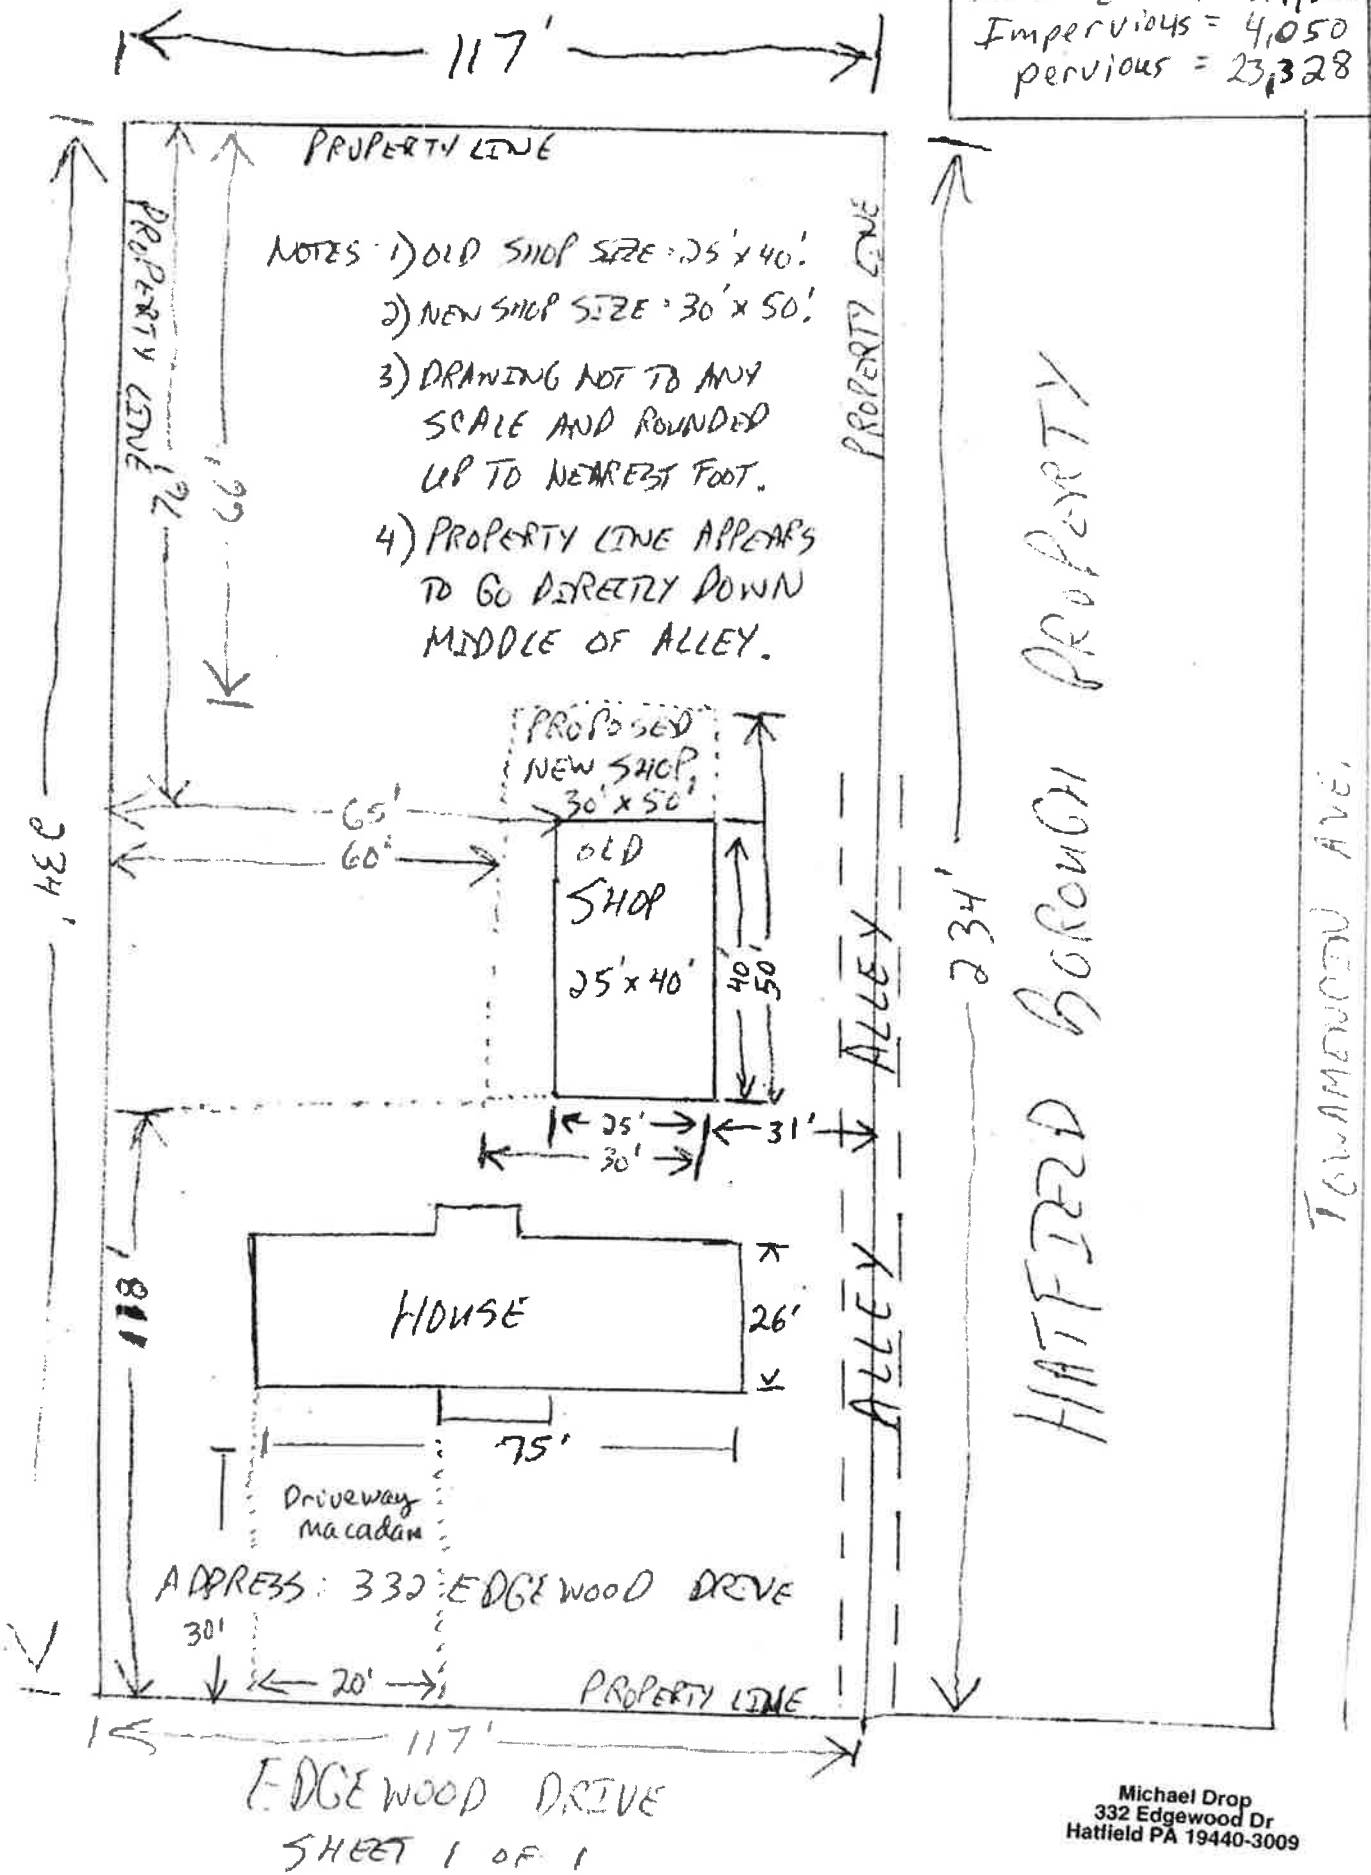 Impervious = 4,050
pervious = 23,328
117'
PROPERTY LINE
PROPERTY LINE
PROPERTY LINE
NOTES 1) OLD SHOP SIZE: 25' x 40'.
2) NEW SHOP SIZE: 30' x 50'.
3) DRAWING NOT TO ANY
SCALE AND ROUNDED
UP TO NEAREST FOOT.
4) PROPERTY LINE APPEARS
TO GO DIRECTLY DOWN
MIDDLE OF ALLEY.
76'
66'
234'
234'
PROPOSED
NEW SHOP,
30' x 50'
65'
60'
OLD
SHOP
25' x 40'
40'
50'
25'
31'
30'
ALLEY
ALLEY
HATFIELD BOROUGH PROPERTY
TOWAMENCIN AVE.
118'
HOUSE
26'
75'
Driveway
macadam
ADDRESS: 332 EDGEWOOD DRIVE
30'
20'
PROPERTY LINE
117'
EDGEWOOD DRIVE
SHEET 1 OF 1
Michael Drop
332 Edgewood Dr
Hatfield PA 19440-3009